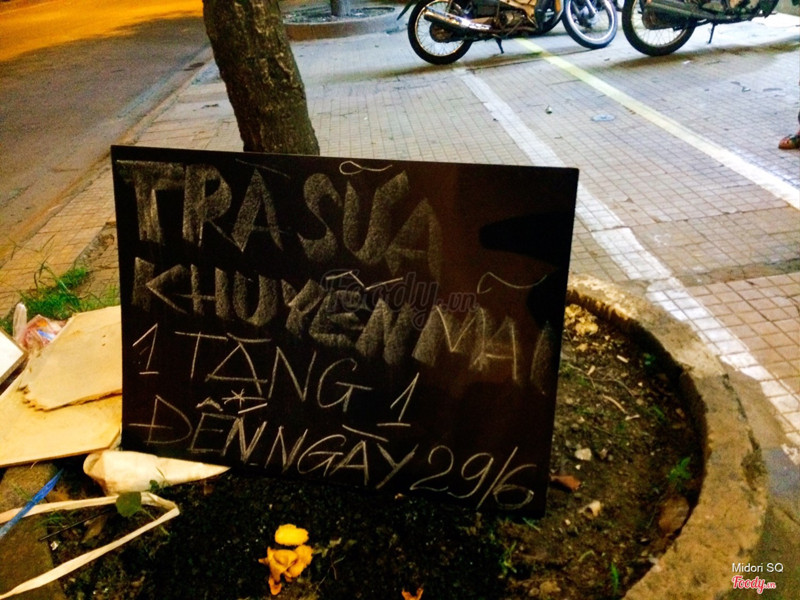 TRÀ SỮA
KHUYẾN MÃI
1 TẶNG 1
ĐẾN NGÀY 29/6
Foody.vn
Midori SQ
Foody.vn